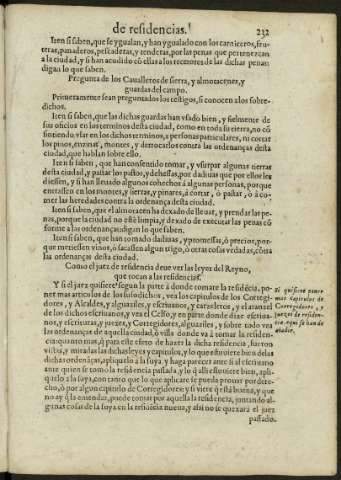 de residencias.
232
Iten si saben, que se ygualan, y han ygualado con los carniceros, fru-
teras, panaderos, pescaderas, y tenderas, por las penas que pertenezcan
a la ciudad, y si han acudido cõ ellas a los recetores de las dichas penas
digan lo que saben.
Pregunta de los Caualleros de sierra, y almotacenes, y
guardas del campo.
Primeramente sean preguntados los testigos, si conocen a los sobre-
dichos.
Iten si saben, que las dichas guardas han vsado bien, y fielmente de
sus oficios en los terminos desta ciudad, como en toda su tierra, no cõ
sintiendo en los dichos terminos, a personas particulares, ni cortar
los pinos, enzinas, montes, y derrocarlos contra las ordenanças desta
ciudad, que hablan sobre ello.
Iten si saben, que han consentido tomar, y vsurpar algunas tierras
desta ciudad, y pastar los pastos, y dehessas, por dadiuas que por ello les
diessen, y si han lleuado algunos cohechos a algunas personas, porque
entrassen en los montes, y sierras, y pinares, a cortar, o pastar, o a co-
mer las heredades contra la ordenança desta ciudad.
Iten si saben, que el almotacen ha dexado de lleuar, y prendar las pe-
nas, porque la ciudad no esté limpia, y dexado de executar las penas cõ
forme a las ordenanças digan lo que saben.
Iten si saben, que han tomado dadiuas, y promessas, o precios, por-
que metiessen vinos, o sacassen algun trigo, o otras cosas vedadas, cõtra
las ordenanças desta ciudad.
Como el juez de residencia deue ver las leyes del Reyno,
que tocan a las residencias.
Y si el juez quisiere segun la parte a donde tomare la residẽcia, po-
ner mas articulos de los susodichos, vea los capitulos de los Corregi-
dores, y Alcaldes, y alguaziles, y escriuanos, y carceleros, y el aranzel
de los dichos escriuanos, y vea el en parte donde dize escriua-
nos, y escrituras, y juezes, y Corregidores, alguaziles, y sobre todo vea
las ordenanças de aquella ciudad, o villa donde va a tomar la residen-
cia quanto mas, que para este efeto de hazer la dicha residencia, fueron
vistas, y miradas las dichas leyes y capitulos, y lo que estuuiere bien delas
dichas ordenanças, apliquelo à la suya, y haga parecer ante si al escriuano
ante quien se tomò la residencia passada, y lo q̃ alli estuuiere bien, apli-
quelo a la suya, con tanto que lo que aplicare se pueda prouar por dere-
cho, ò por algun capitulo de Corregidores: y si viere q̃ està buena, y que
no ay q̃ la emendar, puede tomar por aquella la residencia, juntando al-
gunas cosas de la suya en la residẽcia nueua, y assi no se quexará el juez
passado.
Si quisiere poner
mas capitulos de
Corregidores, y
juezes de residen-
cia aqui se han de
añadir.